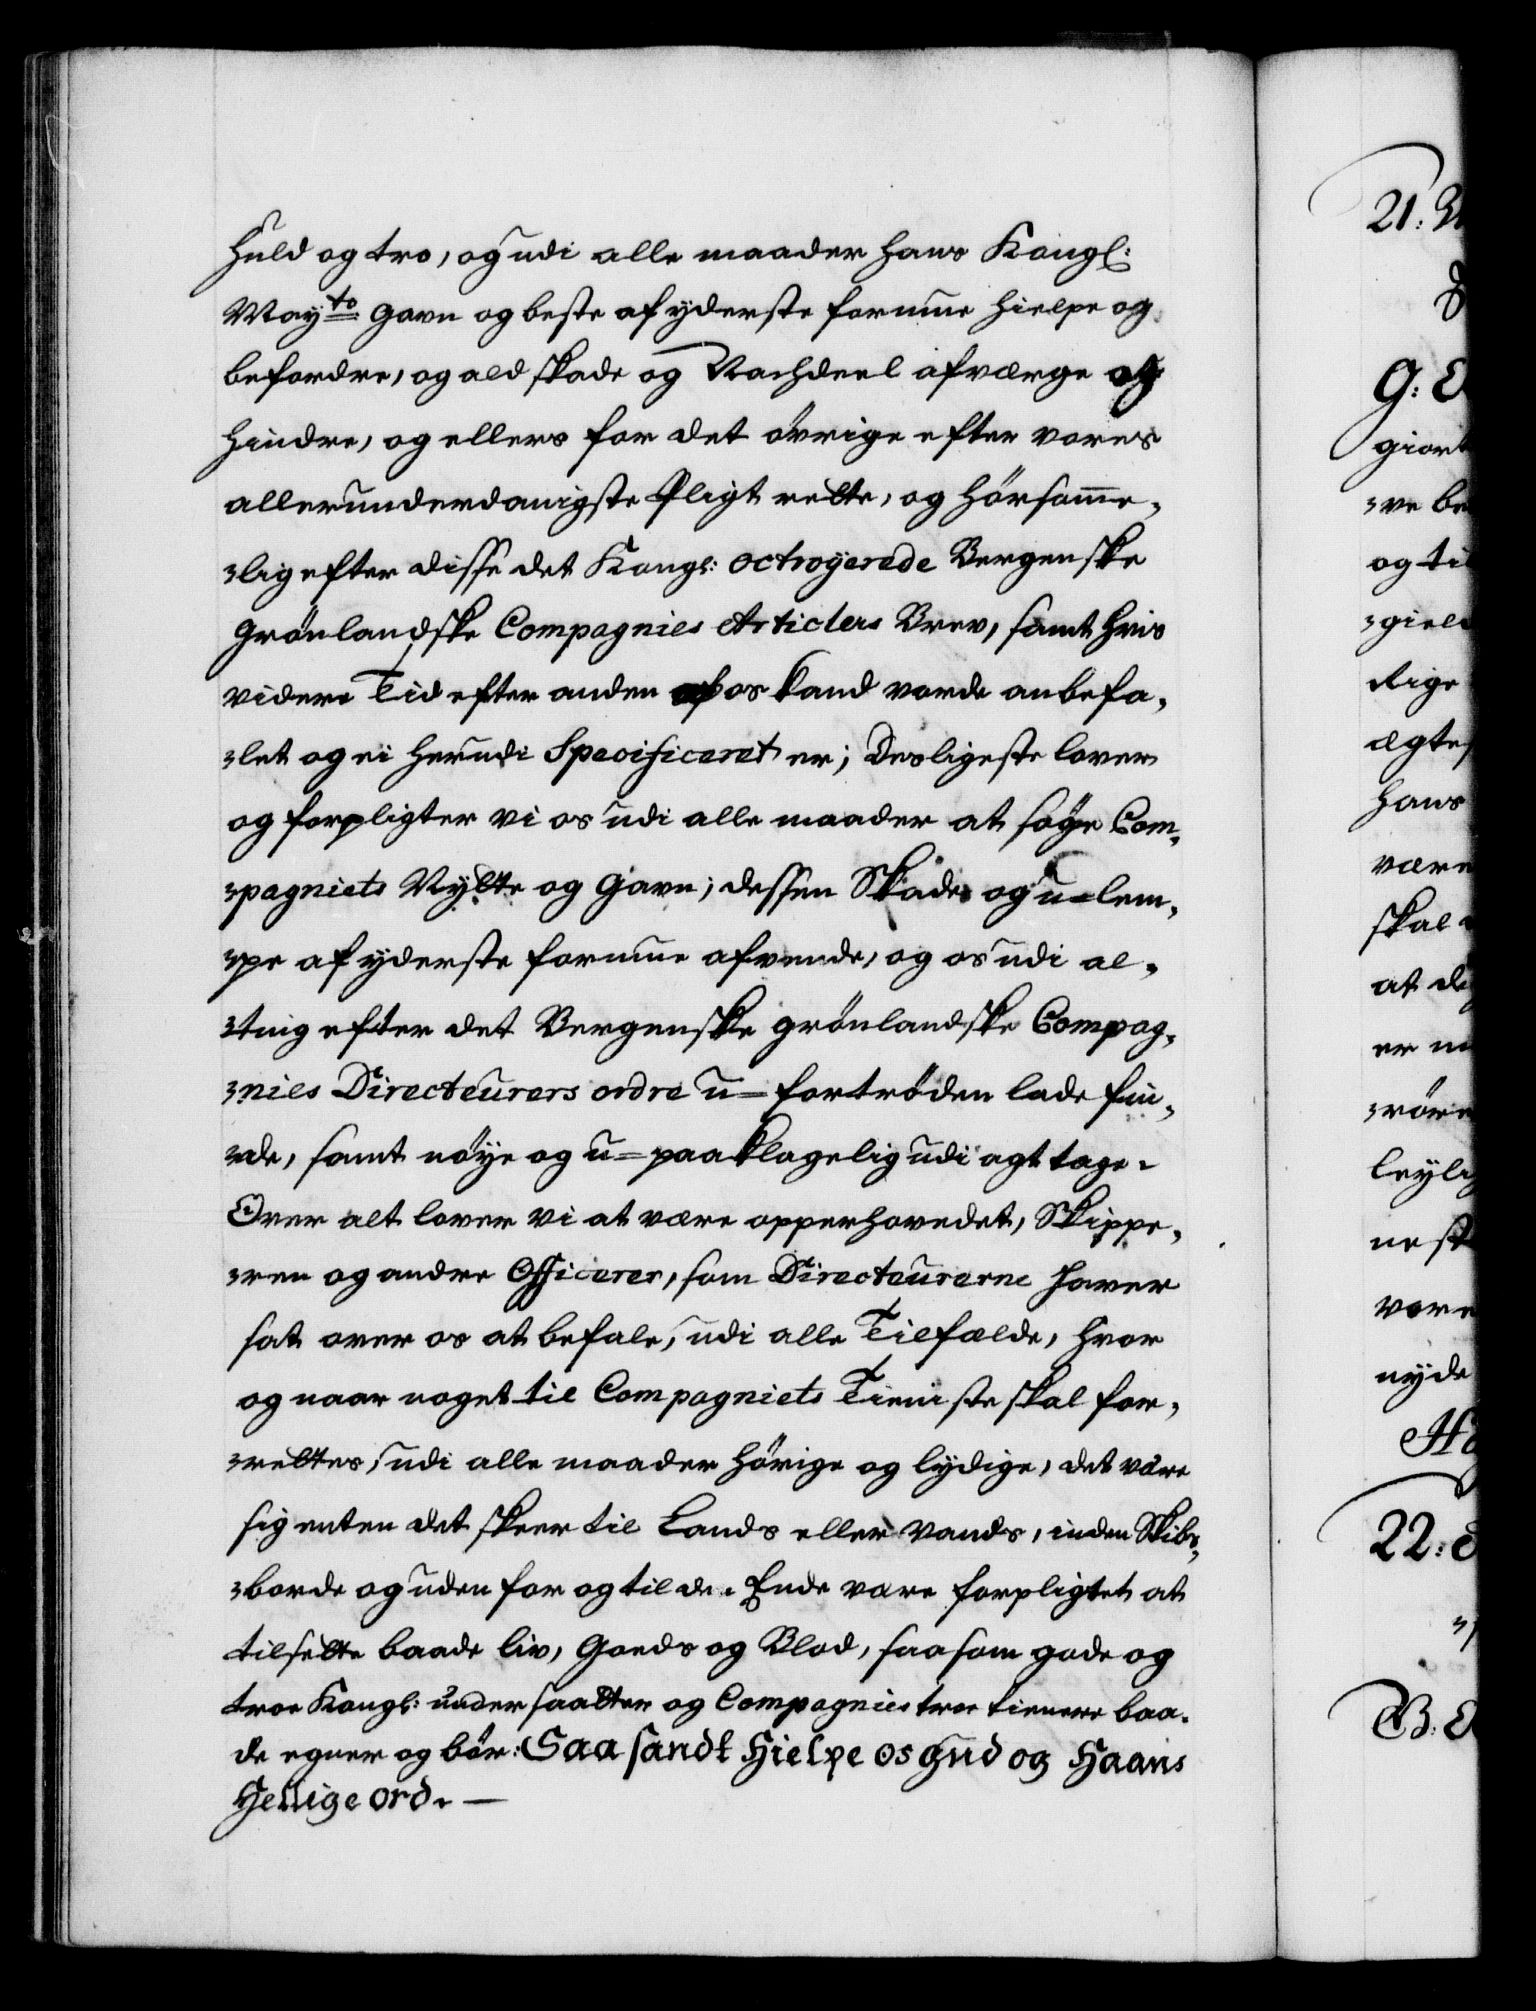 huld og tro, og udi alle maader hans Kongl:
May:ts gavn og beste af yderste formue hielpe og
befordre, og ald skade og Nachdeel afværge og
hindre, og ellers for det övrige efter vores
allerunderdanigste Pligt rette, og hörsomme-
-lig efter disse det Kongl: octroyerede Bergenske
Grönlandske Compagnies Articlers Brev, samt hvis
videre Tid efter anden af os kand vorde anbefa-
-let og ei herudi Specificeret er; Desligeste lover
og forpligter vi os udi alle maader at söge Com-
-pagniets Nytte og Gavn; dessen Skade og u-lem-
-pe af yderste formue afvende, og os udi al-
-ting efter det Bergenske grönlandske Compag-
-nies Directeurers ordre u-fortröden lade fin-
-de, samt nöye og u-paaklagelig udi agt tage.
Over alt lover vi at være opperhovedet, Skippe-
-ren og andre Officerer, som Directeurerne haver
sat over os at befale, udi alle Tilfælde, hvor
og naar noget til Compagniets Tieniste skal for-
-rettes, udi alle maader hörige og lydige, det være
sig enten det skeer til Lands eller Vands, inden Skibs-
-borde og uden for og til den Ende være forpligtet at
tilsette baade liv, Goeds og Blod, saasom gode og
troe Kongl: undersaatter og Compagnies troe tienere baa-
de egner og bör: Saa sandt Hielpe os Gud og Haans
Hellige ord. —
21:
G: E
giort
-ve be
og til
-giel
Rige
ægte
hans
være
skal
at de
er
-röre
leylig
nest
vore
nyde
22:
B: